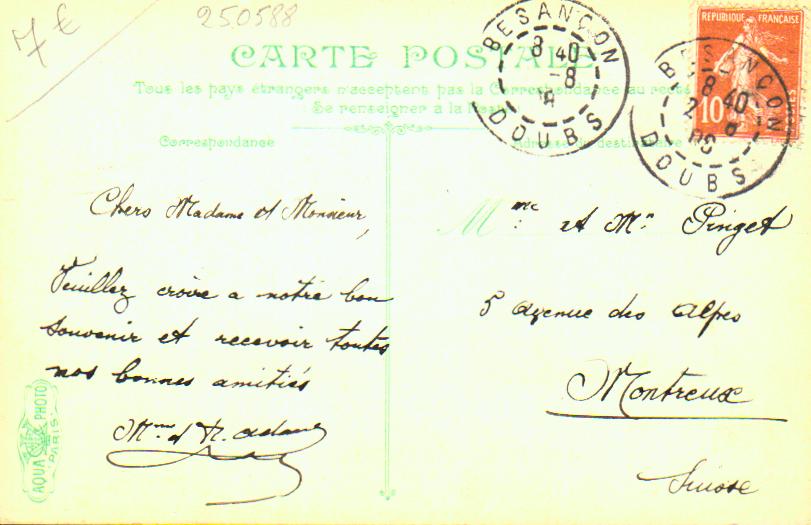 7 €
250588
CARTE POSTALE
Tous les pays étrangers n'acceptent pas la Correspondance au recto
Se renseigner à la Poste
Correspondance
Adresse du destinataire
BESANÇON
8 40
-8
DOUBS
RÉPUBLIQUE FRANÇAISE
10
POSTES
BESANÇON
8 40
2 8
DOUBS
Chers Madame et Monsieur,
Veuillez croire a notre bon
souvenir et recevoir toutes
nos bonnes amitiés
Mme et M. Adam
Mme et Mr Pinget
5 avenue des Alpes
Montreux
Suisse
AQUA PHOTO
PARIS